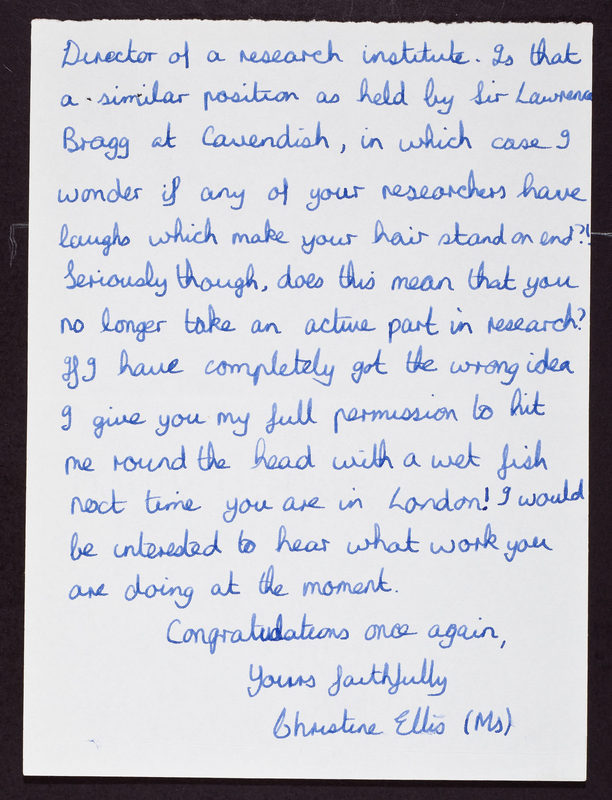 Director of a research institute. Is that
a similar position as held by Sir Lawrence
Bragg at Cavendish, in which case I
wonder if any of your researchers have
laughs which make your hair stand on end?!
Seriously though, does this mean that you
no longer take an active part in research?
If I have completely got the wrong idea
I give you my full permission to hit
me round the head with a wet fish
next time you are in London! I would
be interested to hear what work you
are doing at the moment.
Congratulations once again,
Yours faithfully
Christine Ellis (Ms)